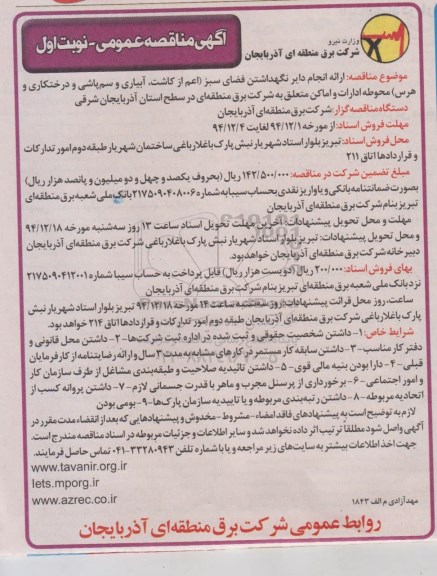 آگهی مناقصه عمومی - نوبت اول
وزارت نیرو
شرکت برق منطقه ای آذربایجان
موضوع مناقصه: ارائه انجام دایر نگهداشتن فضای سبز (اعم از کاشت، آبیاری و سم‌پاشی و درختکاری و
هرس) محوطه ادارات و اماکن متعلق به شرکت برق منطقه‌ای در سطح استان آذربایجان شرقی
دستگاه مناقصه گزار: شرکت برق منطقه‌ای آذربایجان
مهلت فروش اسناد: از مورخه ۹۴/۱۲/۱ لغایت ۹۴/۱۲/۴
محل فروش اسناد: تبریز بلوار استاد شهریار نبش پارک باغلارباغی ساختمان شهریار طبقه دوم امور تدارکات
و قراردادها اتاق ۲۱۱
مبلغ تضمین شرکت در مناقصه: ۱۴۲/۵۰۰/۰۰۰ ریال (بحروف یکصد و چهل و دو میلیون و پانصد هزار ریال)
بصورت ضمانتنامه بانکی و یا واریز نقدی بحساب سیبا به شماره ۲۱۷۵۰۹۰۴۰۸۰۰۶ بانک ملی شعبه برق منطقه‌ای
تبریز بنام شرکت برق منطقه‌ای آذربایجان
مهلت و محل تحویل پیشنهادات: آخرین مهلت تحویل اسناد ساعت ۱۳ روز سه‌شنبه مورخه ۹۴/۱۲/۱۸
و محل تحویل پیشنهادات: تبریز بلوار استاد شهریار نبش پارک باغلارباغی شرکت برق منطقه‌ای آذربایجان
دبیرخانه شرکت برق منطقه‌ای آذربایجان خواهد بود.
بهای فروش اسناد: ۲۰۰/۰۰۰ ریال (دویست هزار ریال) قابل پرداخت به حساب سیبا شماره ۲۱۷۵۰۹۰۴۱۲۰۰۱
نزد بانک ملی شعبه برق منطقه‌ای تبریز بنام شرکت برق منطقه‌ای آذربایجان
ساعت، روز محل قرائت پیشنهادات: روز سه‌شنبه ساعت ۱۴ مورخه ۹۴/۱۲/۱۸ تبریز بلوار استاد شهریار نبش
پارک باغلارباغی شرکت برق منطقه‌ای آذربایجان طبقه دوم امور تدارکات و قراردادها اتاق ۲۱۴ خواهد بود.
شرایط خاص: ۱- داشتن شخصیت حقوقی و ثبت شده در اداره ثبت شرکت‌ها ۲- داشتن محل قانونی و
دفتر کار مناسب ۳- داشتن سابقه کار مستمر در کارهای مشابه به مدت ۳ سال و ارائه رضایتنامه از کارفرمایان
قبلی ۴- دارا بودن بنیه مالی قوی ۵- داشتن تائیدیه صلاحیت و طبقه‌بندی مشاغل از طرف سازمان کار
و امور اجتماعی ۶- برخورداری از پرسنل مجرب و ماهر با قدرت جسمانی لازم ۷- داشتن پروانه کسب از
اتحادیه مربوطه ۸- داشتن رتبه‌بندی مربوطه و یا تاییدیه سازمان پارک‌ها ۹- بومی بودن
لازم به توضیح است به پیشنهادهای فاقد امضاء - مشروط - مخدوش و پیشنهادهایی که بعد از انقضاء مدت مقرر در
آگهی واصل شود مطلقاً ترتیب اثر داده نخواهد شد و سایر اطلاعات و جزئیات مربوطه در اسناد مناقصه مندرج است.
جهت اخذ اطلاعات بیشتر به سایت‌های زیر مراجعه و یا با شماره تلفن ۳۳۲۸۰۹۴۳-۰۴۱ تماس حاصل فرمایند.
www.tavanir.org.ir
iets.mporg.ir
www.azrec.co.ir
مهد آزادی م الف ۱۸۴۳
روابط عمومی شرکت برق منطقه‌ای آذربایجان